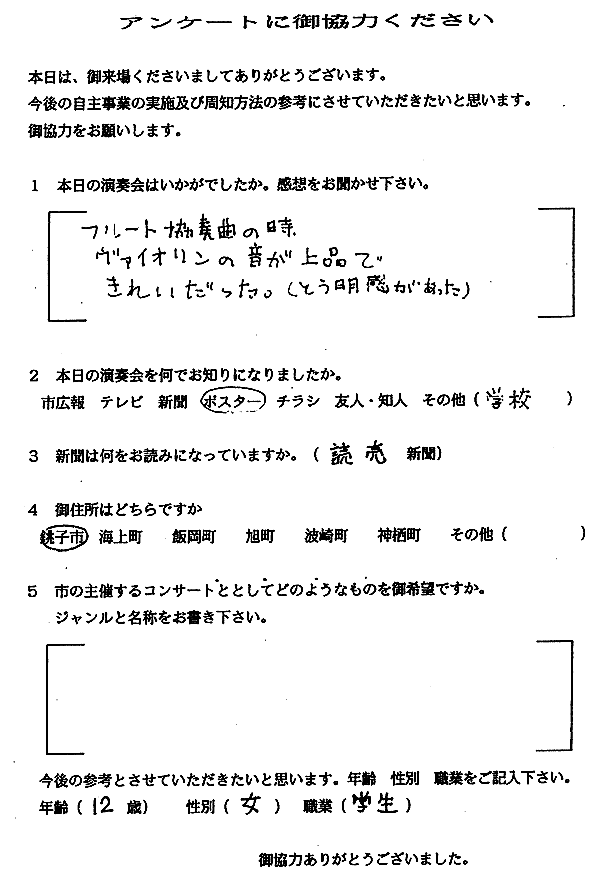 アンケートに御協力ください
本日は、御来場くださいましてありがとうございます。
今後の自主事業の実施及び周知方法の参考にさせていただきたいと思います。
御協力をお願いします。
1 本日の演奏会はいかがでしたか。感想をお聞かせ下さい。
フルート協奏曲の時
ヴァイオリンの音が上品で
きれいだった。(とう明感があった)
2 本日の演奏会を何でお知りになりましたか。
市広報 テレビ 新聞 ポスター チラシ 友人・知人 その他(学校 )
3 新聞は何をお読みになっていますか。(読売 新聞)
4 御住所はどちらですか
銚子市 海上町 飯岡町 旭町 波崎町 神栖町 その他( )
5 市の主催するコンサートととしてどのようなものを御希望ですか。
ジャンルと名称をお書き下さい。
今後の参考とさせていただきたいと思います。年齢 性別 職業をご記入下さい。
年齢(12 歳) 性別(女 ) 職業(学生)
御協力ありがとうございました。